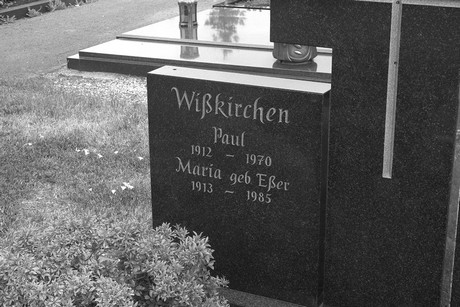 Wißkirchen
Paul
1912 – 1970
Maria geb Eßer
1913 – 1985